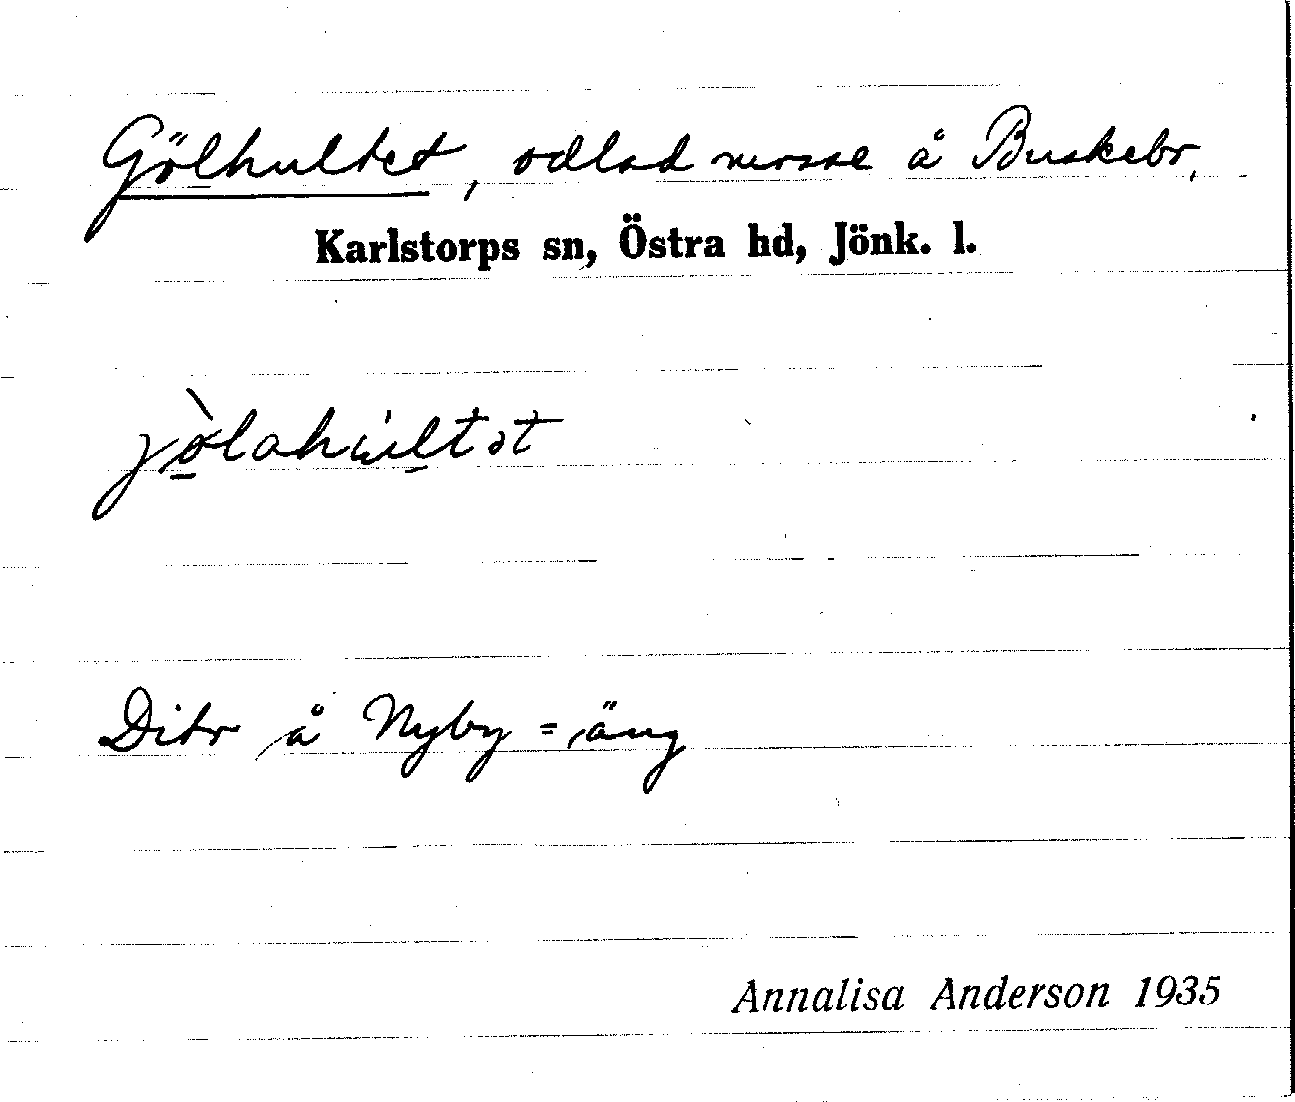 Gölhultet, odlad mosse å Buskebr,
Karlstorps sn, Östra hd, Jönk. l.
jölahultət
Dito å Nyby = äng
Annalisa Anderson 1935